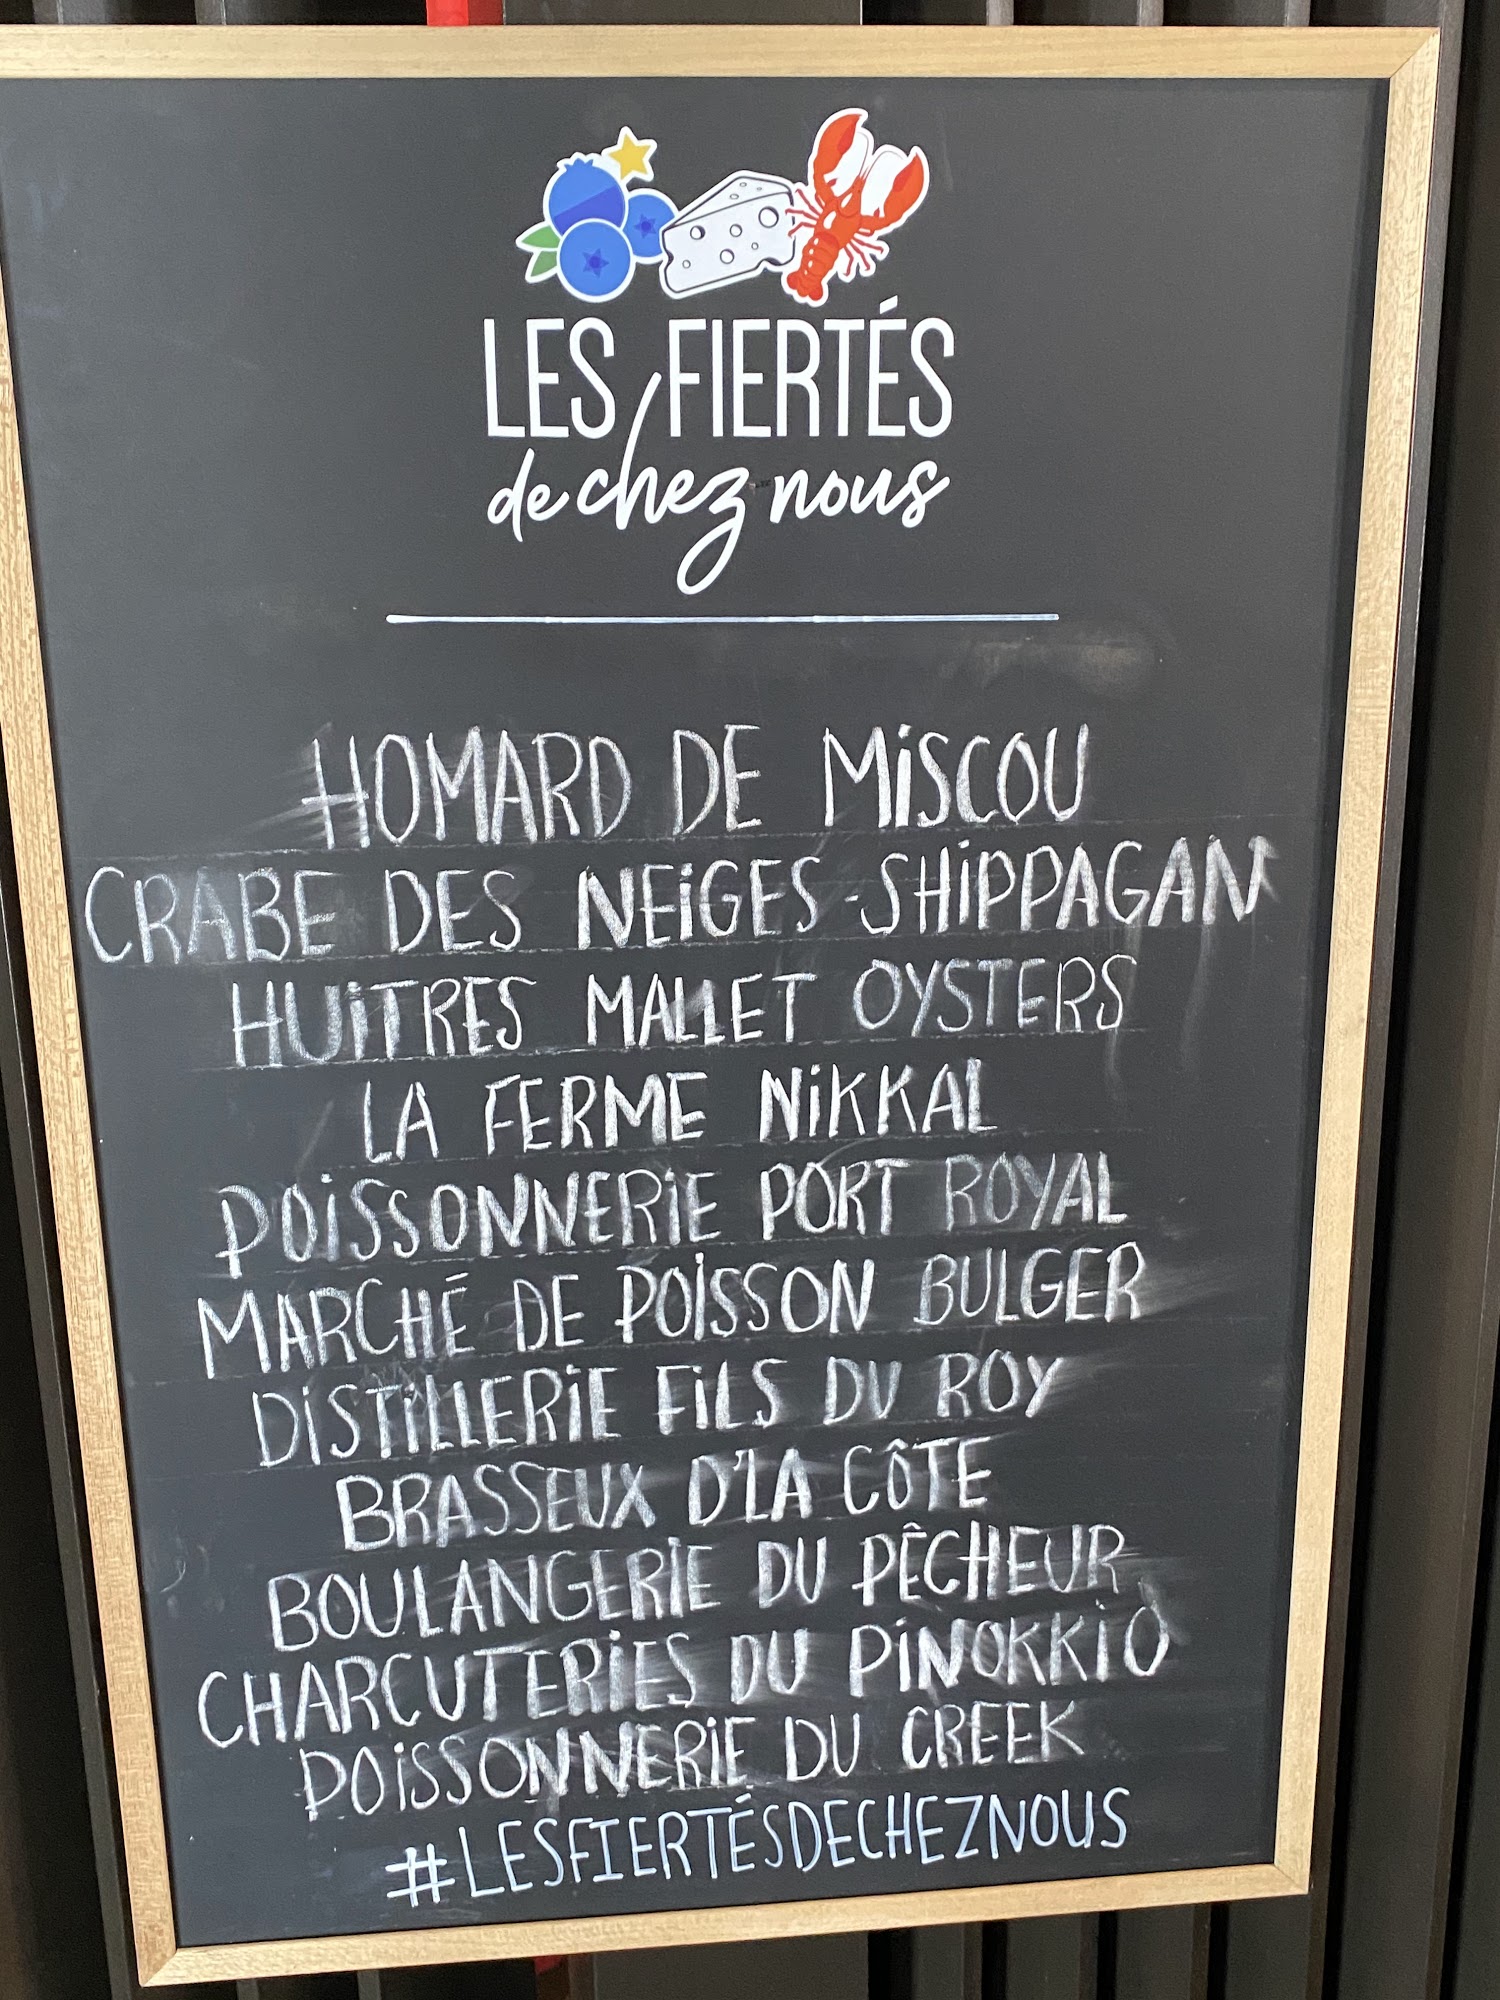 LES FIERTÉS
de chez nous
HOMARD DE MiSCOU
CRABE DES NEiGES-SHiPPAGAN
HUiTRES MALLET OYSTERS
LA FERME NiKKAL
POiSSONNERiE PORT ROYAL
MARCHÉ DE POiSSON BULGER
DiSTiLLERiE FiLS DU ROY
BRASSEUX D'LA CÔTE
BOULANGERIE DU PÊCHEUR
CHARCUTERiES DU PiNOKKiO
POiSSONNERiE DU CREEK
#LESFIERTÉSDECHEZNOUS